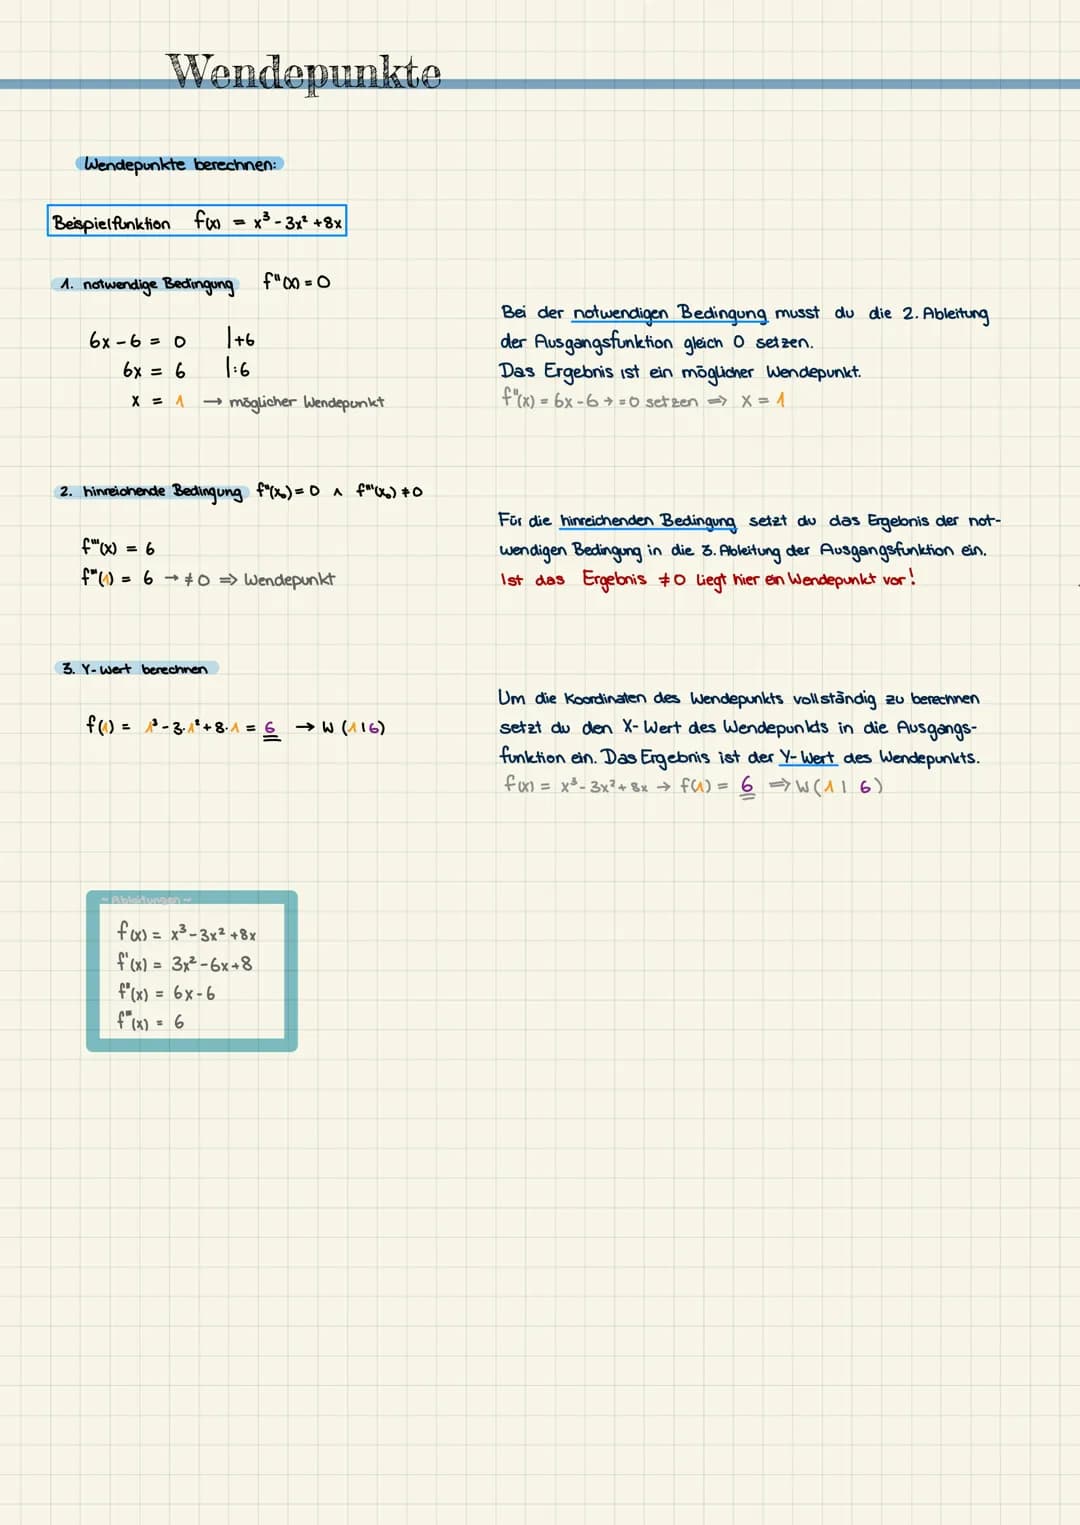 Wendepunkte
Wendepunkte berechnen:
Beispielfunktion f(x) = x³ - 3x² + 8x
1. notwendige Bedingung f''(x) = 0
6x - 6 = 0 |+6
6x = 6 |:6
x = 1 → möglicher Wendepunkt
Bei der notwendigen Bedingung musst du die 2. Ableitung
der Ausgangsfunktion gleich 0 setzen.
Das Ergebnis ist ein möglicher Wendepunkt.
f''(x) = 6x - 6 → = 0 setzen ⇒ x = 1
2. hinreichende Bedingung f''(x₀) = 0 ∧ f'''(x₀) ≠ 0
f'''(x) = 6
f'''(1) = 6 → ≠ 0 ⇒ Wendepunkt
Für die hinreichenden Bedingung setzt du das Ergebnis der not-
wendigen Bedingung in die 3. Ableitung der Ausgangsfunktion ein.
Ist das Ergebnis ≠ 0 liegt hier ein Wendepunkt vor!
3. Y-Wert berechnen
f(1) = 1³ - 3·1² + 8·1 = 6 → W (1|6)
Um die Koordinaten des Wendepunkts vollständig zu berechnen
setzt du den X-Wert des Wendepunkts in die Ausgangs-
funktion ein. Das Ergebnis ist der Y-Wert des Wendepunkts.
f(x) = x³ - 3x² + 8x → f(1) = 6 ⇒ W (1 | 6)
~ Ableitungen ~
f(x) = x³ - 3x² + 8x
f'(x) = 3x² - 6x + 8
f''(x) = 6x - 6
f'''(x) = 6